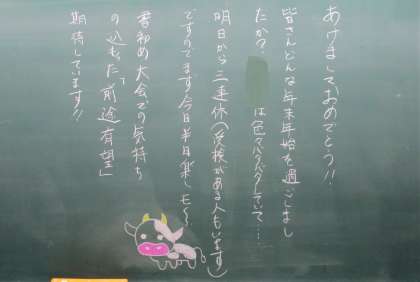 あけましておめでとう!!
皆さんどんな年末年始を過ごしまし
たか?
は色々バタバタしていて……
明日から三連休(受検がある人もいます)
ですのでまず今日半日楽しも〜
書初め大会での気持ち
の込もった「前途有望」
期待しています!!